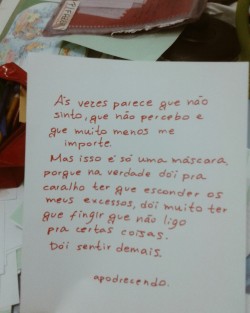 Às vezes parece que não
sinto, que não percebo e
que muito menos me
importe.
Mas isso é só uma máscara,
porque na verdade dói pra
caralho ter que esconder os
meus excessos, dói muito ter
que fingir que não ligo
pra certas coisas.
Dói sentir demais.
apodrecendo.